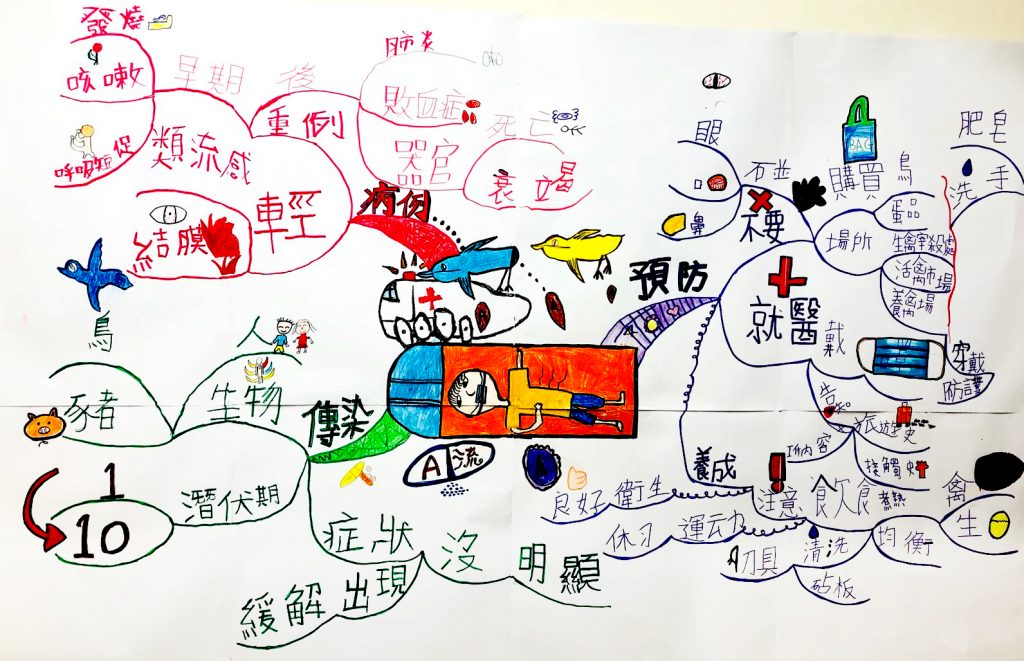 發燒
咳嗽
呼吸短促
早期
類流感
結膜
輕
後
重例
肺炎
敗血症
器官
死亡
OFF
衰竭
病例
預防
眼
口
鼻
不要
石並
購買
BAG
場所
鳥
蛋品
生禽宰殺處
活禽市場
養禽場
肥皂
洗手
就醫
戴
穿戴
防護
告知
旅遊史
工作內容
接觸史
養成
良好衛生
休习
運动
注意
飲食
煮熟
禽
生
均衡
清洗
刀具
砧板
傳染
人
生物
鳥
豬
潛伏期
1
10
症狀
沒明顯
緩解出現
A流
A